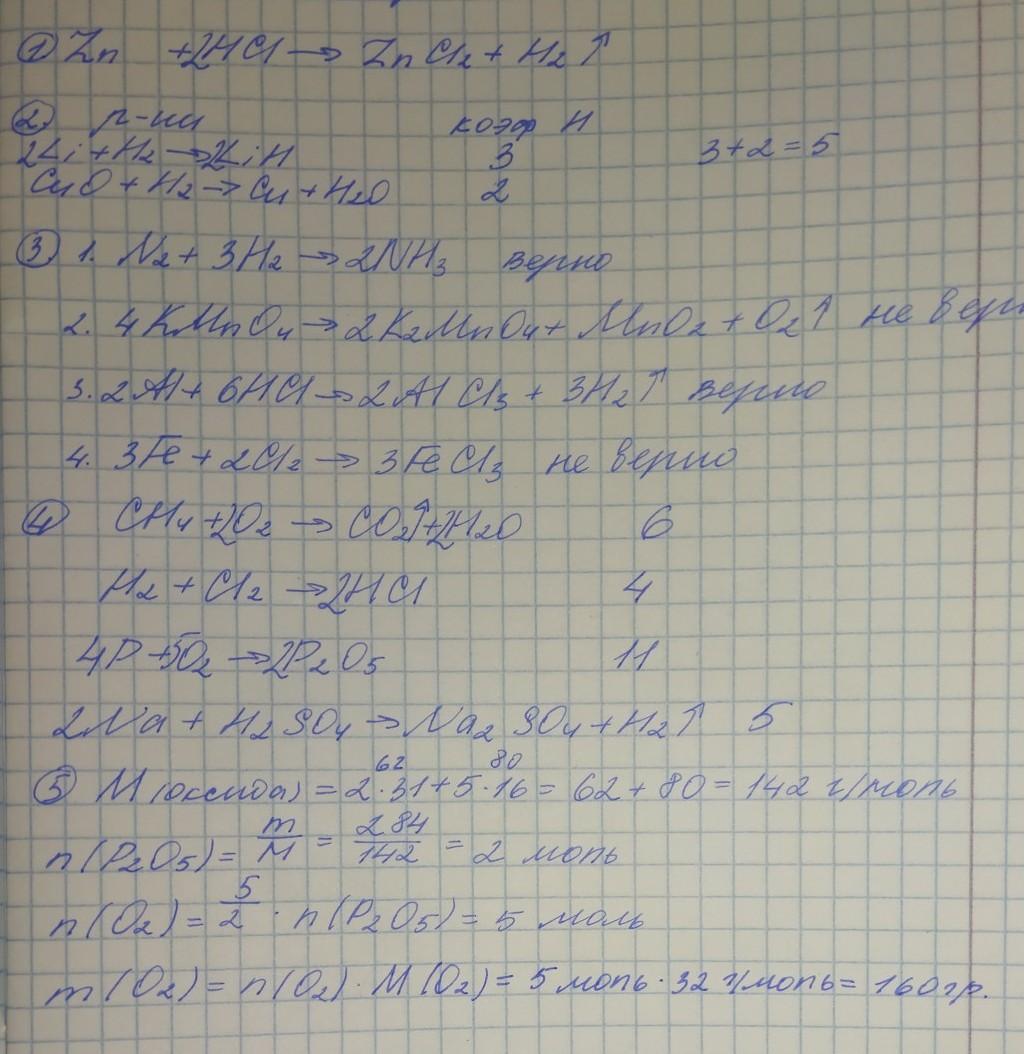 ① Zn + 2HCl → ZnCl₂ + H₂↑
② р-ии коэф Н
2Li + H₂ → 2LiH 3 3+2=5
CuO + H₂ → Cu + H₂O 2
③ 1. N₂ + 3H₂ → 2NH₃ верно
2. 4KMnO₄ → 2K₂MnO₄ + MnO₂ + O₂↑ не верн
3. 2Al + 6HCl → 2AlCl₃ + 3H₂↑ верно
4. 3Fe + 2Cl₂ → 3FeCl₃ не верно
④ CH₄ + 2O₂ → CO₂↑ + 2H₂O 6
H₂ + Cl₂ → 2HCl 4
4P + 5O₂ → 2P₂O₅ 11
2Na + H₂SO₄ → Na₂SO₄ + H₂↑ 5
62 80
⑤ M(оксида) = 2·31 + 5·16 = 62 + 80 = 142 г/моль
n(P₂O₅) = m/M = 284/142 = 2 моль
n(O₂) = 5/2 · n(P₂O₅) = 5 моль
m(O₂) = n(O₂) · M(O₂) = 5 моль · 32 г/моль = 160гр.